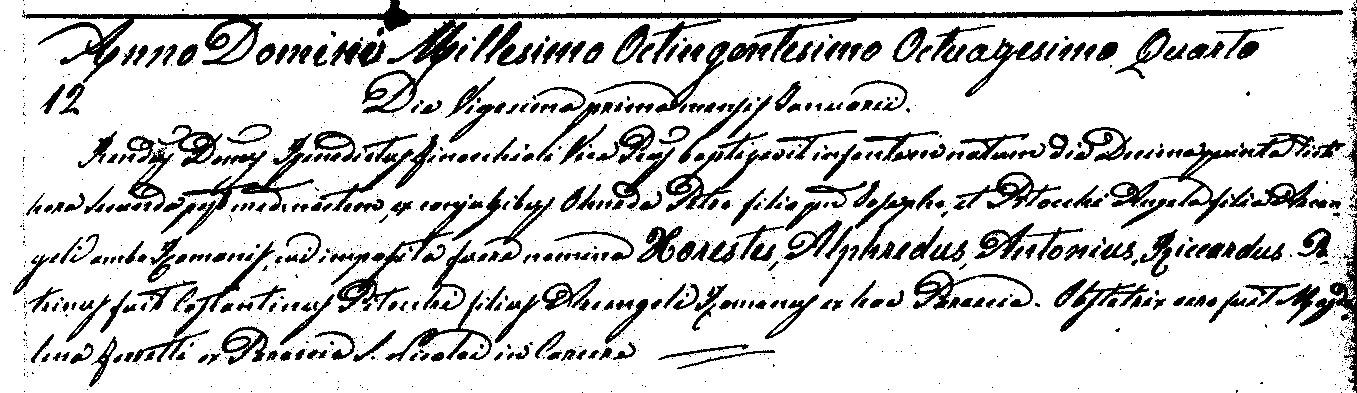 Anno Domini Millesimo Octingentesimo Octuagesimo Quarto
12 Die Vigesima prima mensis Januarii.
Rendus Domus Benedictus Finocchioli Vice Pars baptizavit infantem natum die Decima quinta
hora secunda post mediam noctem, ex conjugibus Petro filio qm Josepho, et Pitocchi Angela filia Arcan-
geli ambo Romanis, cui imposita fuere nomina Horestes, Alphredus, Antonius, Riccardus. Pa-
trinus fuit Costantinus Pitocchi filius Archangeli Romanus ex hac Paraecia. Obstetrix vero fuit Magda-
lena ex Paraecia S. Nicolai in Carcere